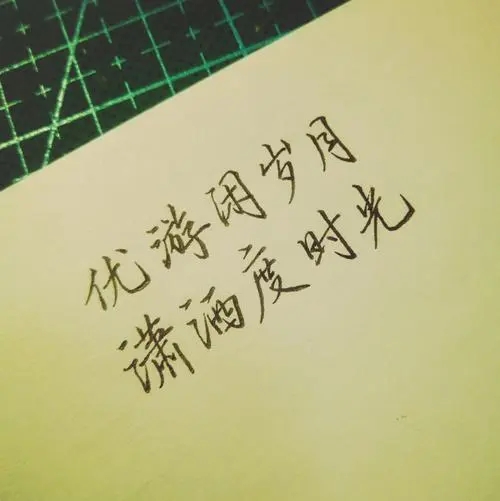 优游闲岁月
潇洒度时光